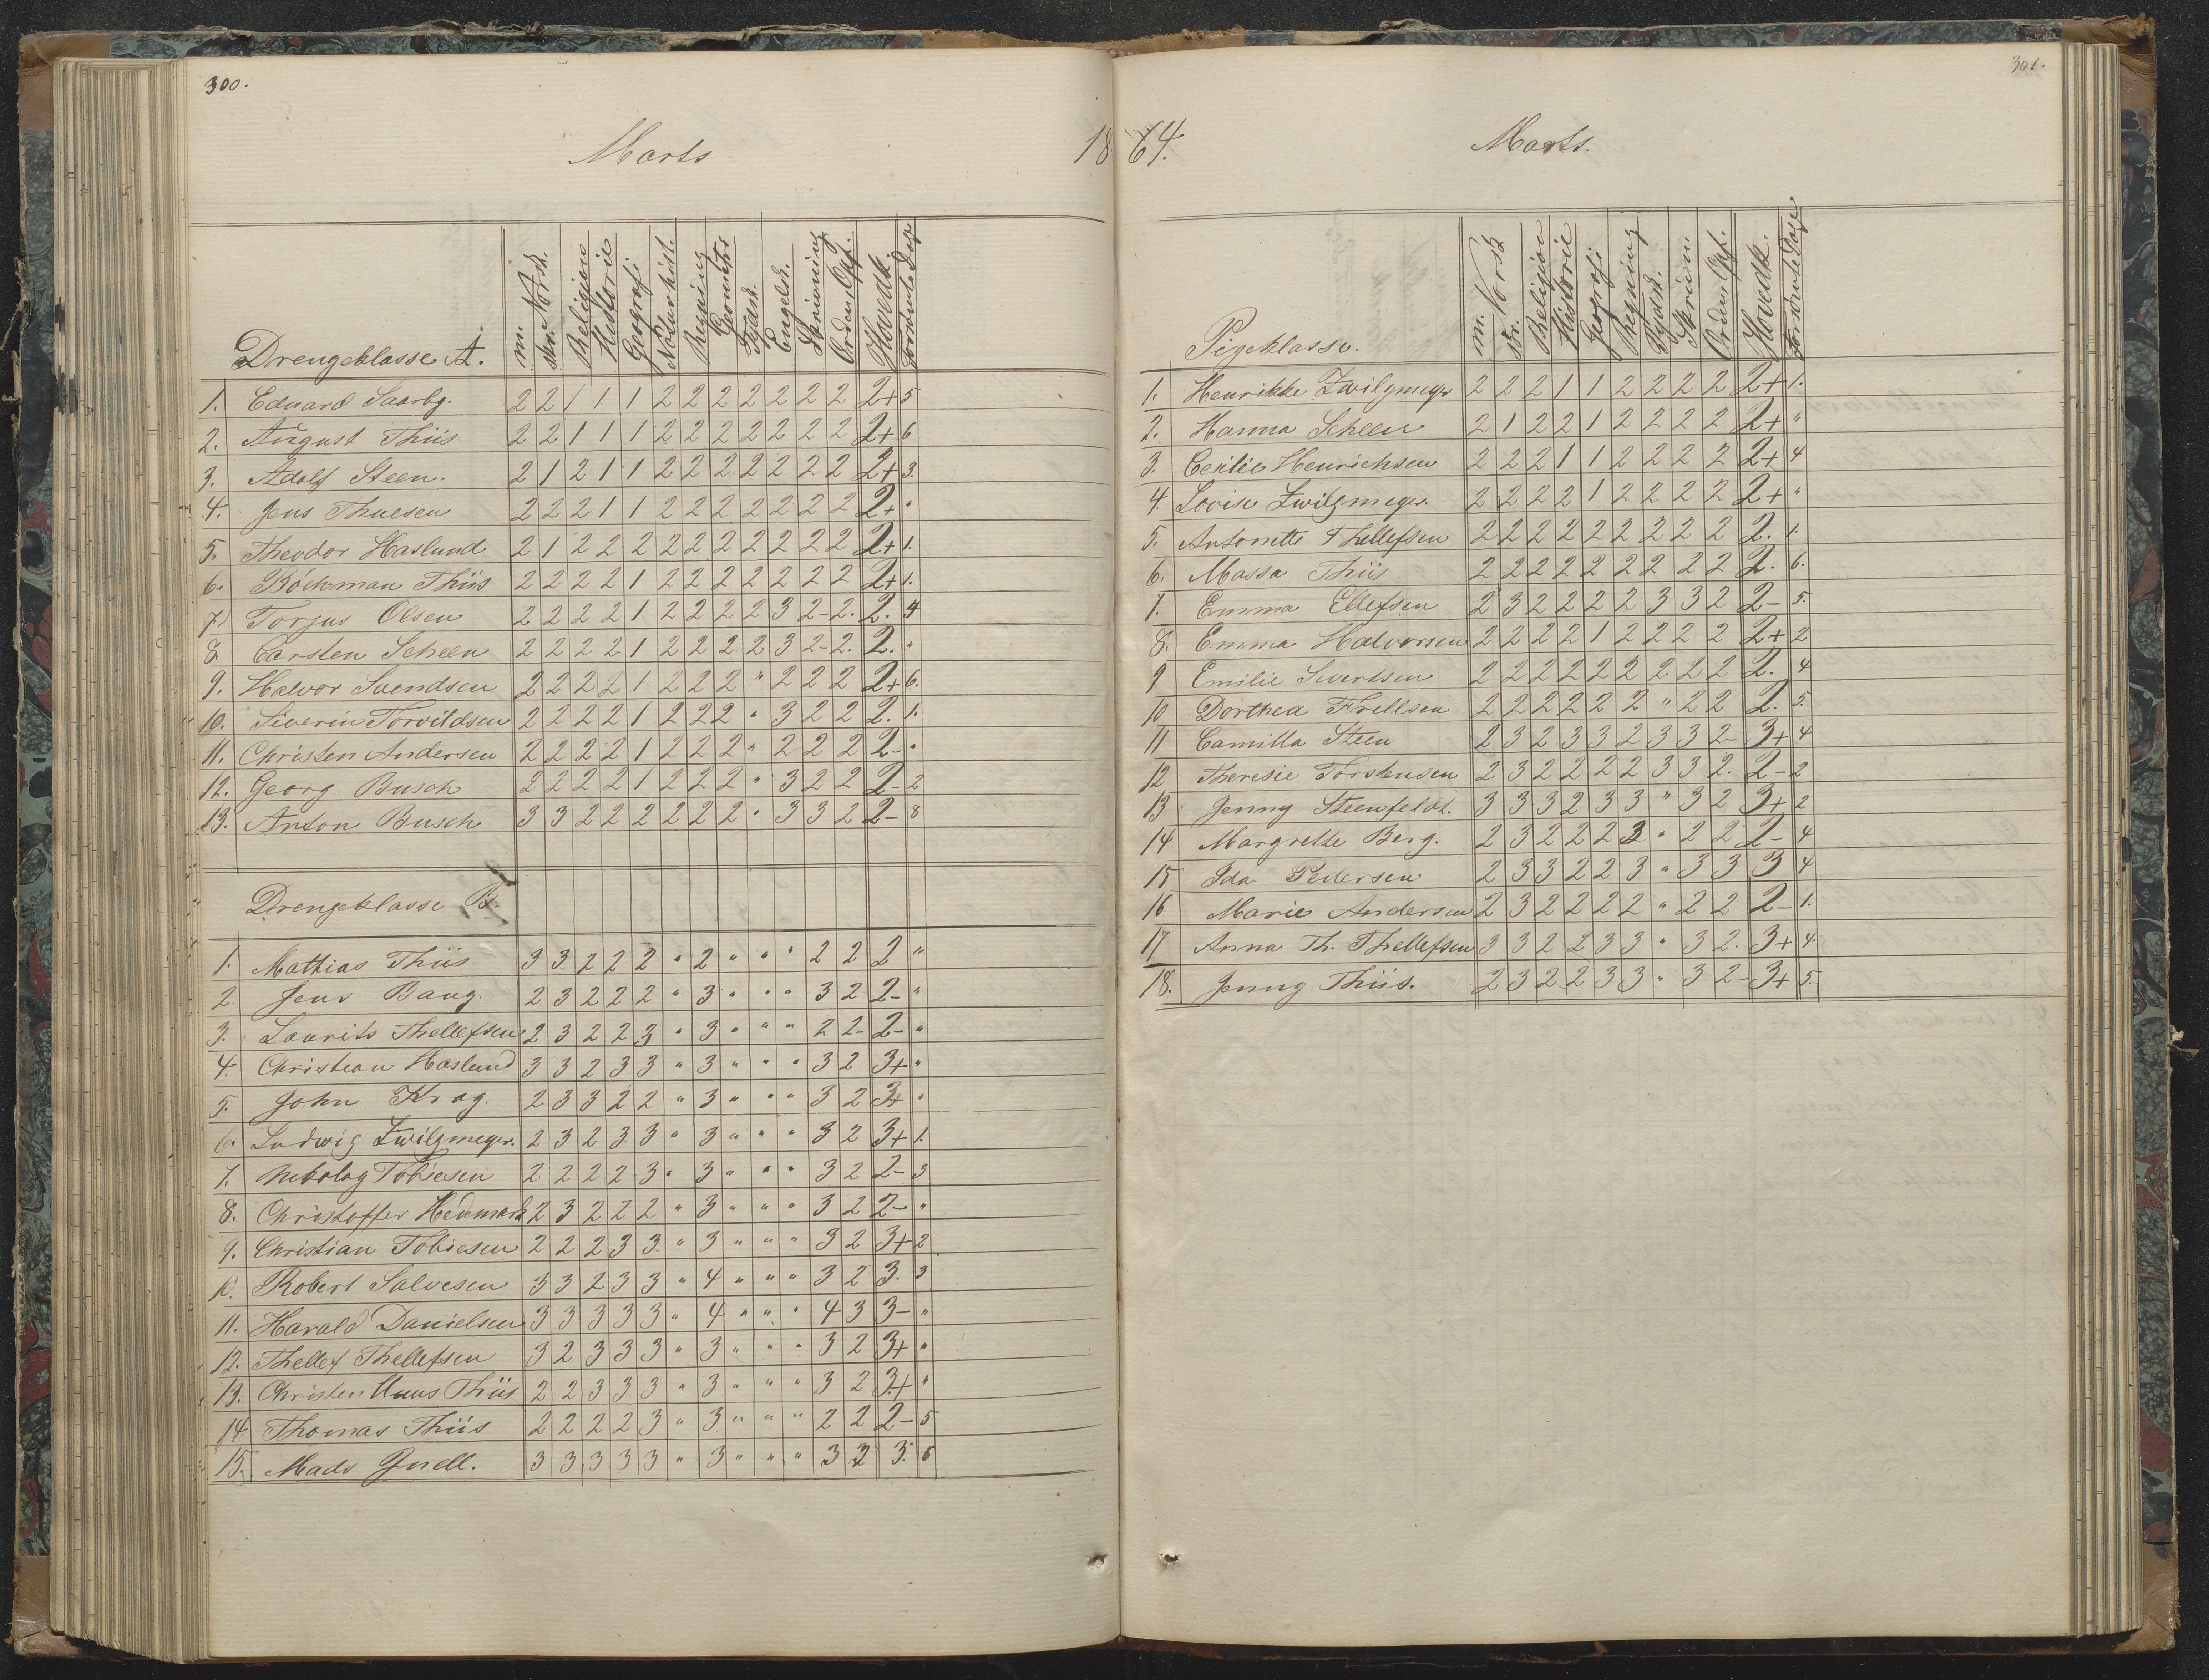 300.
Marts 18
Drengeklasse A. m. skr. Norsk. Religion Historie Geografi Naturhist. Regning Geometri Tydsk. Engelsk. Skrivning Orden, Opf. Hovedk. Forsømte Dage
1. Eduard Saarbg. 2 2 1 1 1 2 2 2 2 2 2 2 2+ 5
2. August Thiis 2 2 1 1 1 2 2 2 2 2 2 2 2+ 6
3. Adolf Steen. 2 1 2 1 1 2 2 2 2 2 2 2 2+ 3.
4. Jens Thuesen 2 2 2 1 1 2 2 2 2 2 2 2 2+ "
5. Theodor Haslund 2 1 2 2 2 2 2 2 2 2 2 2 2+ 1.
6. Böckman Thiis 2 2 2 2 1 2 2 2 2 2 2 2 2+ 1.
7. Torjus Olsen 2 2 2 2 1 2 2 2 2 3 2- 2. 2. 4
8. Carsten Scheen 2 2 2 2 1 2 2 2 2 3 2- 2. 2. "
9. Halvor Svendsen 2 2 2 2 1 2 2 2 " 2 2 2 2+ 6.
10. Siverin Torvildsen 2 2 2 2 1 2 2 2 " 3 2 2 2. 1.
11. Christen Andersen 2 2 2 2 1 2 2 2 " 2 2 2 2- "
12. Georg Busch 2 2 2 2 1 2 2 2 " 3 2 2 2- 2
13. Anton Busch 3 3 2 2 2 2 2 2 " 3 3 2 2- 8
Drengeklasse B.
1. Mathias Thiis 3 3 2 2 2 " 2 " " " 2 2 2 "
2. Jens Bang. 2 3 2 2 2 " 3 " " " 3 2 2- "
3. Laurits Thellefsen 2 3 2 2 3 " 3 " " " 2 2- 2- "
4. Christian Haslund 3 3 2 3 3 " 3 " " " 3 2 3+ "
5. John Krag. 2 3 3 2 2 " 3 " " " 3 2 3+ "
6. Ludwig Zwilgmeyer. 2 3 2 3 3 " 3 " " " 3 2 3+ 1.
7. Tobiesen 2 2 2 2 3 " 3 " " " 3 2 2- 3
8. Christoffer Hedemark 2 3 2 2 2 " 3 " " " 3 2 2- "
9. Christian Tobiesen 2 2 2 3 3 " 3 " " " 3 2 3+ 2
10. Robert Salvesen 3 3 2 3 3 " 4 " " " 3 2 3. 3
11. Harald Danielsen 3 3 3 3 3 " 4 " " " 4 3 3- "
12. Thellef Thellefsen 3 2 3 3 3 " 3 " " " 3 2 3+ "
13. Christen Thiis 2 2 3 3 3 " 3 " " " 3 2 3+ "
14. Thomas Thiis 2 2 2 2 3 " 3 " " " 2 2 2- 5
15. Mads Gjuell. 3 3 3 3 3 " 3 " " " 3 2 3. 6
301.
64. Marts.
Pigeklasse. m. skr. Norsk Religion Historie Geografi Regning Tydsk. Skrivn. Orden, Opf. Hovedk. Forsømte Dage
1. Henrikke Zwilgmeyer 2 2 2 1 1 2 2 2 2 2+ 1.
2. Hanna Scheen 2 1 2 2 1 2 2 2 2 2+ "
3. Cecilie Henrichsen 2 2 2 1 1 2 2 2 2 2+ 4
4. Lovise Zwilgmeyer. 2 2 2 2 1 2 2 2 2 2+ "
5. Antonette Thellefsen 2 2 2 2 2 2 2 2 2 2. 1.
6. Massa Thiis 2 2 2 2 2 2 2 2 2 2. 6.
7. Emma Ellefsen 2 3 2 2 2 2 3 3 2 2- 5.
8. Emma Halvorsen 2 2 2 2 1 2 2 2 2 2+ 2
9 Emilie Sivertsen 2 2 2 2 2 2 2 2 2 2. 4
10 Dorthea Frellsen 2 2 2 2 2 2 " 2 2 2. 5.
11 Camilla Steen 2 3 2 3 3 2 3 3 2- 3+ 4
12 Theresie Torstensen 2 3 2 2 2 2 3 3 2. 2- 2
13 Jenny Steenfeldt. 3 3 3 2 3 3 " 3 2 3+ 2
14 Margrethe Berg. 2 3 2 2 2 3 " 2 2 2- 4
15 Ida Pedersen 2 3 3 2 2 3 " 3 3 3 4
16 Marie Andersen 2 3 2 2 2 2 " 2 2 2- 1.
17 Anna Th. Thellefsen 3 3 2 2 3 3 " 3 2. 3+ 4
18. Jenny Thiis. 2 3 2 2 3 3 " 3 2- 3+ 5.